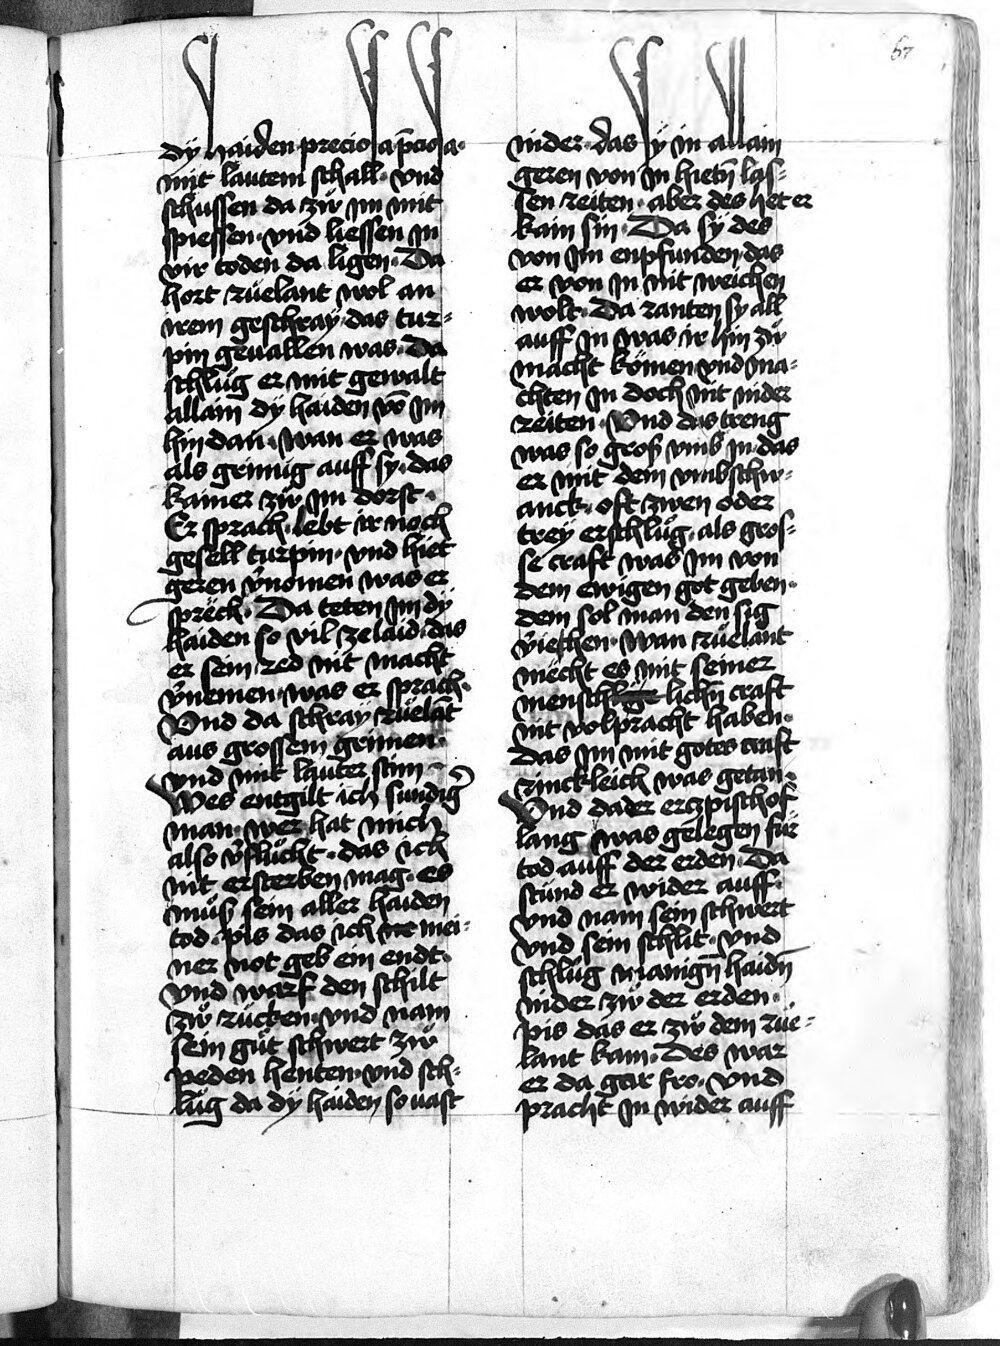 67
dy haiden preciosa p̄ciosa·
mit lautem schall· vnd
schussen da zẘ im mit
spiessen· vnd liessen jn
vir toden da ligen· Da
hort růelant wol an
irem geschray· das tur⸗
pin geuallen was· Da
schlůg er mit gewalt
allain dy haiden vō im
hin dan· wan er was
als grimig auff sy· das
kainer zẘ im dorst·
Er sprach· lebt ir noch
gesell turpin· vnd hiet
geren v̄nomen was er
sprëch· Da teten im dy
haiden so vil ze laid· das
er sein red nit macht
v̄nemen· was er sprach·
Vnd da schray růelāt
aus grossem grimen·
vnd mit lauter stim
Wes entgilt ich sundig̛
man· wer hat mich
also v̄flůcht· das ich
nit ersterben mag· es
můß sein aller haiden
tod· pis das ich mei⸗
ner not geb ein endt·
vnd warf den schilt
zẘ rücken· vnd nam
sein gůt schwert zẘ
peden henten· vnd sch⸗
lůg da dy haiden so uast
nider· das sy in allain
geren von jn hietn̄ las⸗
sen reiten· aber des het er
kain sin· Da sy des
von jm enpfunden· das
er von jn nit weichen
wolt· Da ranten sy all
auff jn was ir hin zẘ
macht kömen· vnd ma⸗
chten jn doch nit nider
reiten· Vnd das treng
was so groß vmb jn· das
er mit dem vmbschw⸗
anck· oft zwen oder
trey erschlůg· als gros⸗
se craft was jm von
dem ewigen got geben·
dem sol man den sig
v̄iechen· Wan růelant
mëcht es mit seiner
mensch lichn̄ craft
nit volpracht haben·
das jm mit gotes craft
rinckleich was getan·
Vnd da der erczpischof
lang was gelegen für
tod auff der erden· Da
stůnd er wider auff·
vnd nam sein schwert
vnd sein schilt· vnd
schlůg manign̄ haidn̄
nider zẘ der erden·
pis das er zẘ dem růe⸗
lant kam· Des war
er da gar fro· vnd
pracht jn wider auff